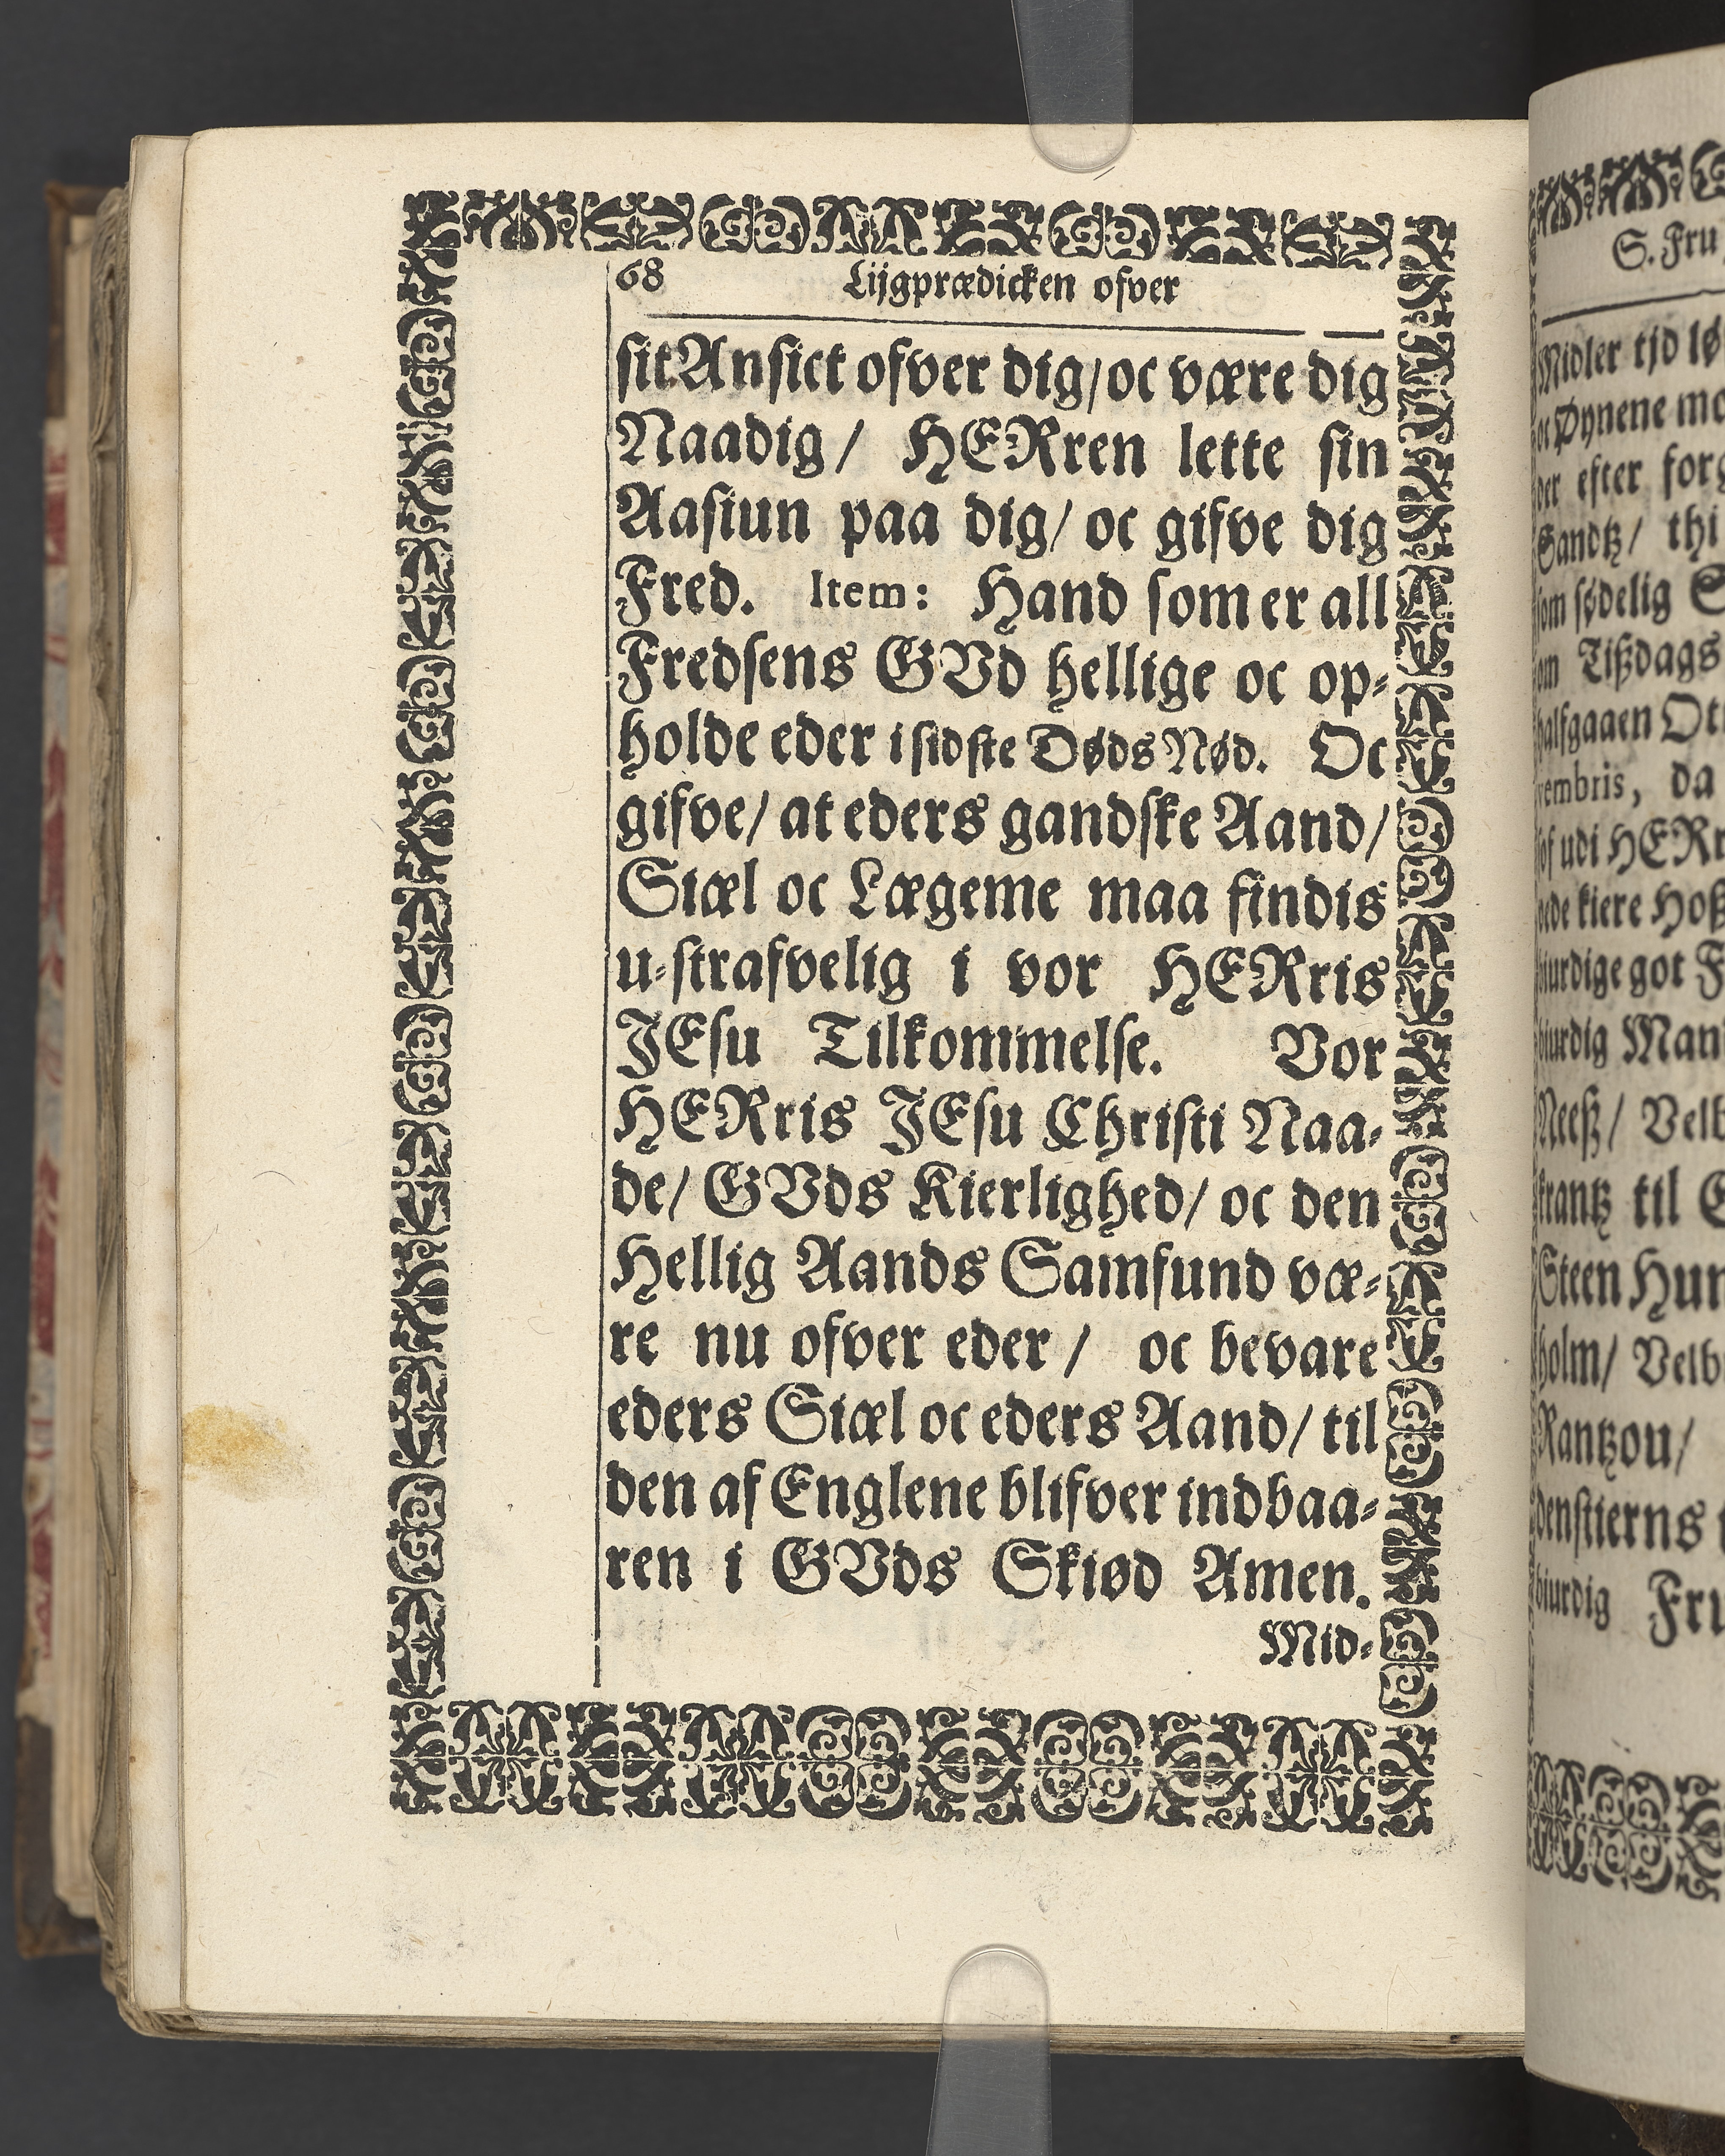 68 Lijgprædicken ofver
sit Ansict ofver dig/ oc være dig
Naadig/ HERren lette sin
Aasiun paa dig/ oc gifve dig
Fred. Item: Hand som er all
Fredsens GVd hellige oc op-
holde eder i sidste Døds Nød. Oc
gifve/ at eders gandske Aand/
Siæl oc Lægeme maa findis
u-strafvelig i vor HERris
JEsu Tilkommelse. Vor
HERris JEsu Christi Naa-
de/ GVds Kierlighed/ oc den
Hellig Aands Samfund væ-
re nu ofver eder/ oc bevare
eders Siæl oc eders Aand/ til
den af Englene blifver indbaa-
ren i GVds Skiød Amen.
Mid-
S. Fru
Midler tjd
oc Øynene
efter
Sandtz/ thi
som sødelig
Tißdags
halfgaaen
vembris, da
udi
kiere
got
Man
Neeß/
krantz til
Steen
holm/
Rantzou/
denstierns
Fru